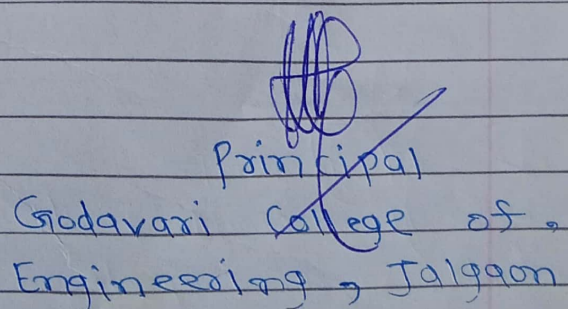 Principal
Godavari College of,
Engineering, Jalgaon